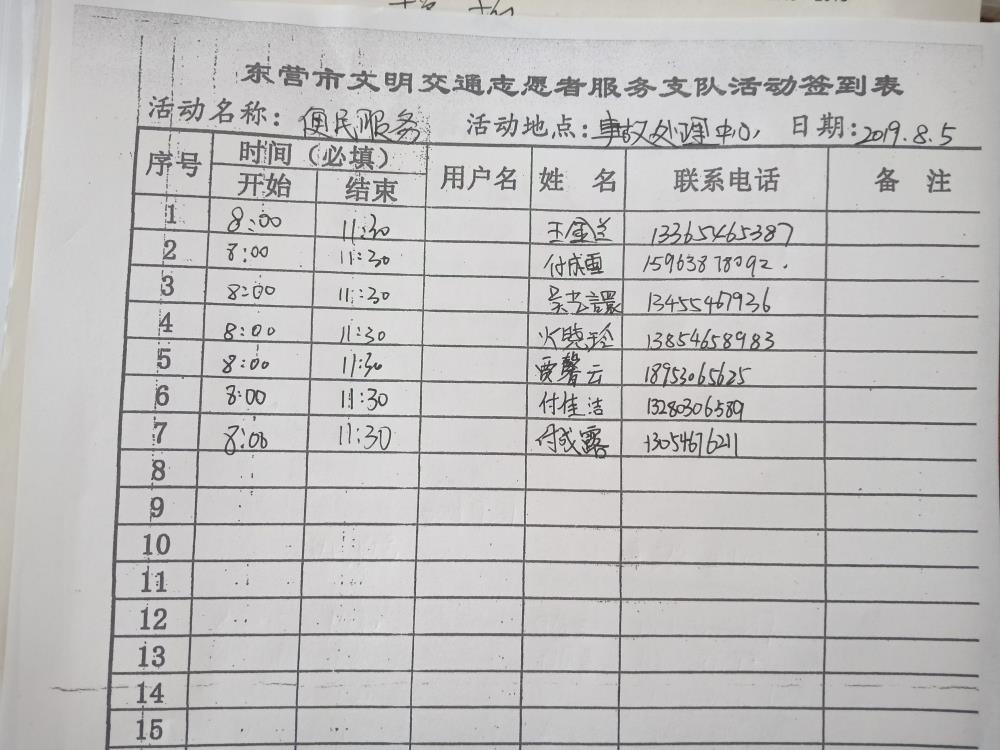 东营市文明交通志愿者服务支队活动签到表
活动名称：便民服务 活动地点：事故处理中心 日期：2019.8.5
序号 时间（必填） 用户名 姓 名 联系电话 备 注
开始 结束
1 8:00 11:30 王金兰 13365465387
2 8:00 11:30 付成重 15963878092.
3 8:00 11:30 13455467936
4 8:00 11:30 火晓玲 13854658983
5 8:00 11:30 贾馨云 18953065625
6 8:00 11:30 付佳洁 13280306589
7 8:00 11:30 付成露 13054676211
8
9
10
11
12
13
14
15